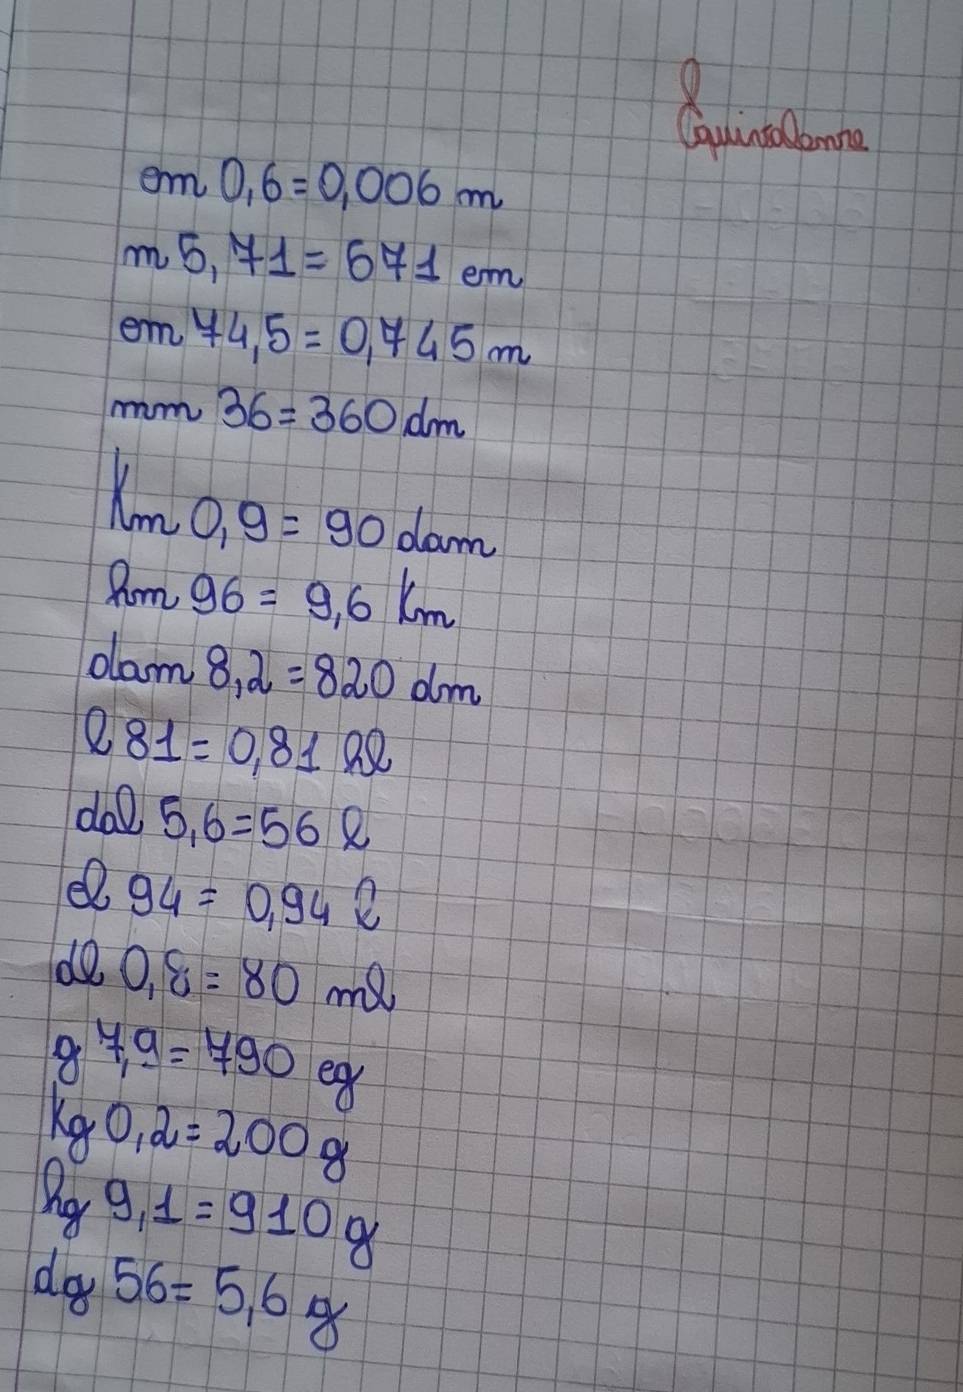 Equivalenze
cm 0,6 = 0,006 m
m 5,71 = 571 cm
cm 74,5 = 0,745 m
mm 36 = 360 dm
Km 0,9 = 90 dam
hm 96 = 9,6 Km
dam 8,2 = 820 dm
l 81 = 0,81 hl
dal 5,6 = 56 l
cl 94 = 0,94 l
dl 0,8 = 80 ml
g 7,9 = 790 cg
kg 0,2 = 200 g
hg 9,1 = 910 g
dg 56 = 5,6 g